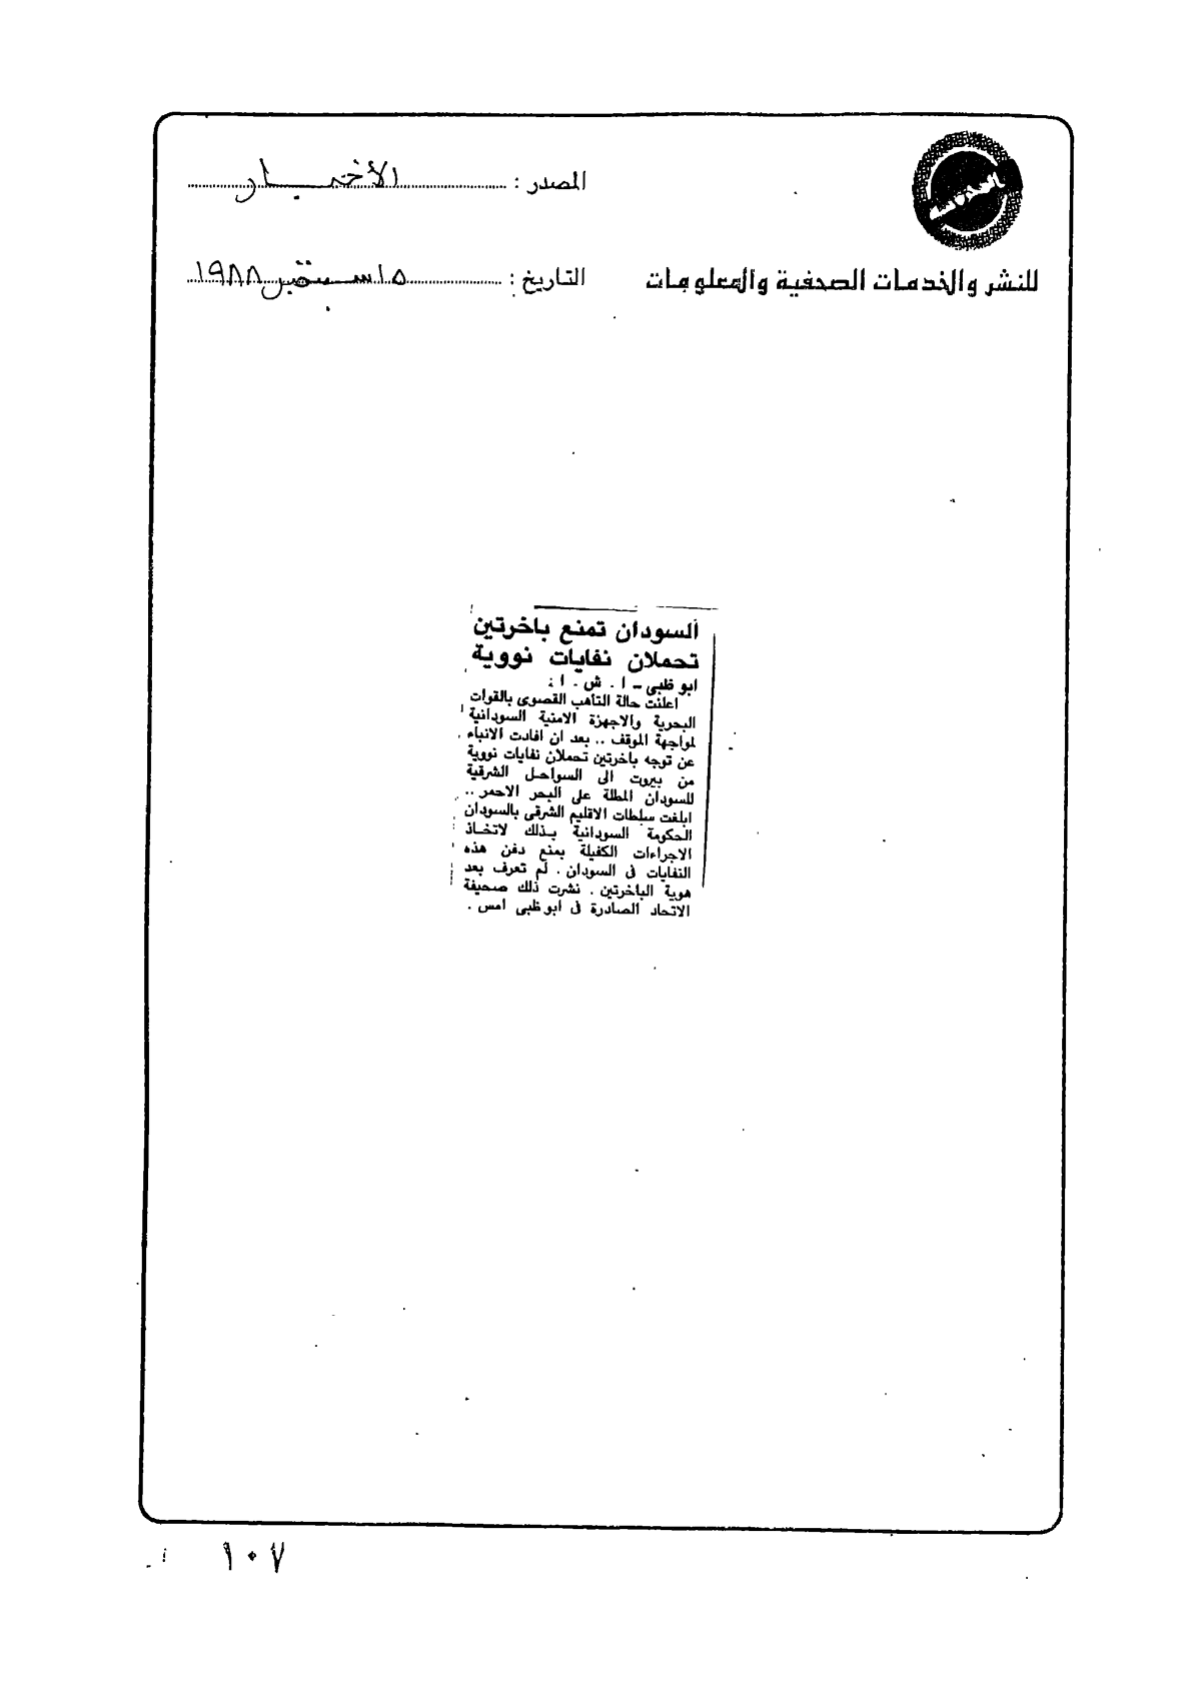 المصدر : الأخبار
للنشر والخدمات الصحفية والمعلومات
التاريخ : ١٥ سبتمبر ١٩٨٨
السودان تمنع باخرتين
تحملان نفايات نووية
ابو ظبى - ا . ش . ا :
اعلنت حالة التأهب القصوى بالقوات
البحرية والاجهزة الامنية السودانية
لمواجهة الموقف .. بعد ان افادت الانباء
عن توجه باخرتين تحملان نفايات نووية
من بيروت الى السواحل الشرقية
للسودان المطلة على البحر الاحمر ..
ابلغت سلطات الاقليم الشرقى بالسودان
الحكومة السودانية بذلك لاتخاذ
الاجراءات الكفيلة بمنع دفن هذه
النفايات فى السودان . لم تعرف بعد
هوية الباخرتين . نشرت ذلك صحيفة
الاتحاد الصادرة فى ابو ظبى امس .
١٠٧